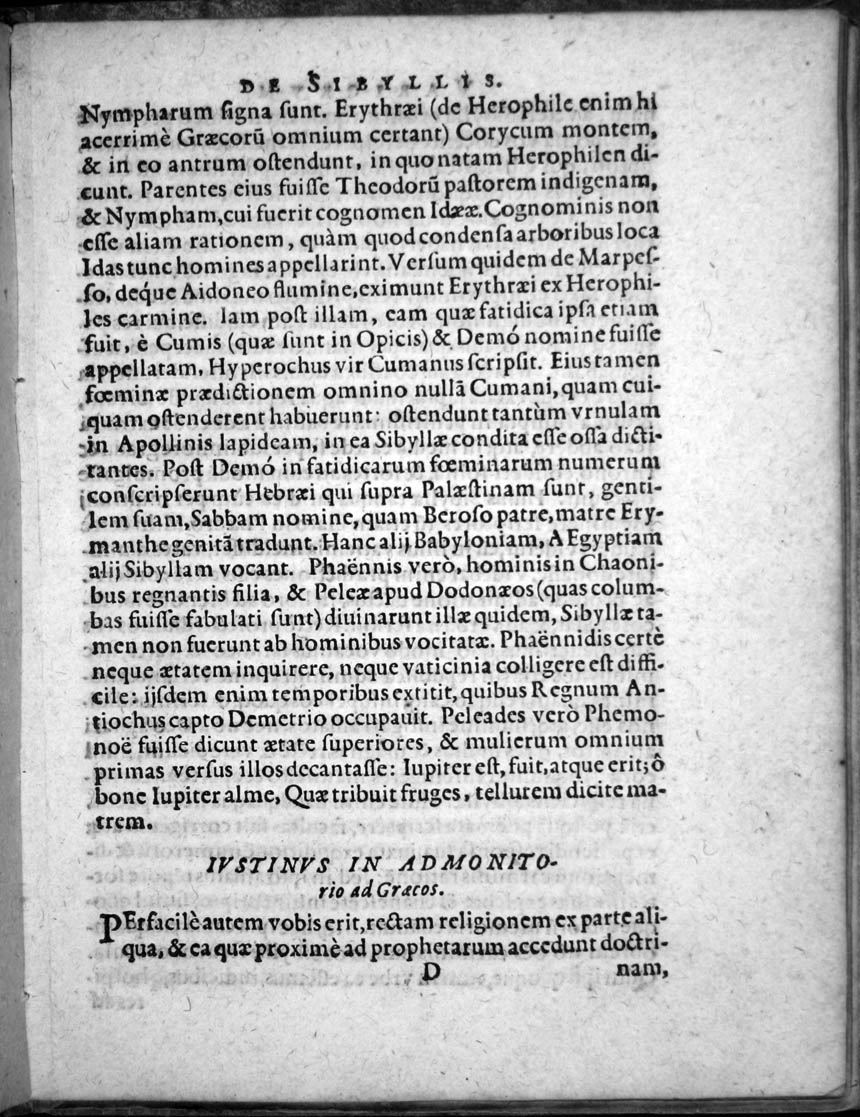 DE SIBYLLIS.
Nympharum ſigna ſunt. Erythræi (de Herophile enim hi
acerrimè Græcorũ omnium certant) Corycum montem,
& in eo antrum oſtendunt, in quo natam Herophilen di-
cunt. Parentes eius fuiſſe Theodorũ paſtorem indigenam,
& Nympham, cui fuerit cognomen Idææ. Cognominis non
eſſe aliam rationem, quàm quod condenſa arboribus loca
Idas tunc homines appellarint. Verſum quidem de Marpeſ-
ſo, deq́ue Aidoneo flumine, eximunt Erythræi ex Herophi-
les carmine. Iam poſt illam, eam quæ fatidica ipſa etiam
fuit, è Cumis (quæ ſunt in Opicis) & Demó nomine fuiſſe
appellatam, Hyperochus vir Cumanus ſcripſit. Eius tamen
fœminæ prædictionem omnino nullã Cumani, quam cui-
quam oſtenderent habuerunt: oſtendunt tantùm vrnulam
in Apollinis lapideam, in ea Sibyllæ condita eſſe oſſa dicti-
tantes. Poſt Demó in fatidicarum fœminarum numerum
conſcripſerunt Hebræi qui ſupra Palæſtinam ſunt, genti-
lem ſuam, Sabbam nomine, quam Beroſo patre, matre Ery-
manthe genitã tradunt. Hanc alij Babyloniam, AEgyptiam
alij Sibyllam vocant. Phaënnis verò, hominis in Chaoni-
bus regnantis filia, & Peleæ apud Dodonæos (quas colum-
bas fuiſſe fabulati ſunt) diuinarunt illæ quidem, Sibyllæ ta-
men non fuerunt ab hominibus vocitatæ. Phaënnidis certè
neque ætatem inquirere, neque vaticinia colligere eſt diffi-
cile: ijſdem enim temporibus extitit, quibus Regnum An-
tiochus capto Demetrio occupauit. Peleades verò Phemo-
noë fuiſſe dicunt ætate ſuperiores, & mulierum omnium
primas verſus illos decantaſſe: Iupiter eſt, fuit, atque erit; ô
bone Iupiter alme, Quæ tribuit fruges, tellurem dicite ma-
trem.
IVSTINVS IN ADMONITO-
rio ad Græcos.
PErfacilè autem vobis erit, rectam religionem ex parte ali-
qua, & ea quæ proximè ad prophetarum accedunt doctri-
D nam,